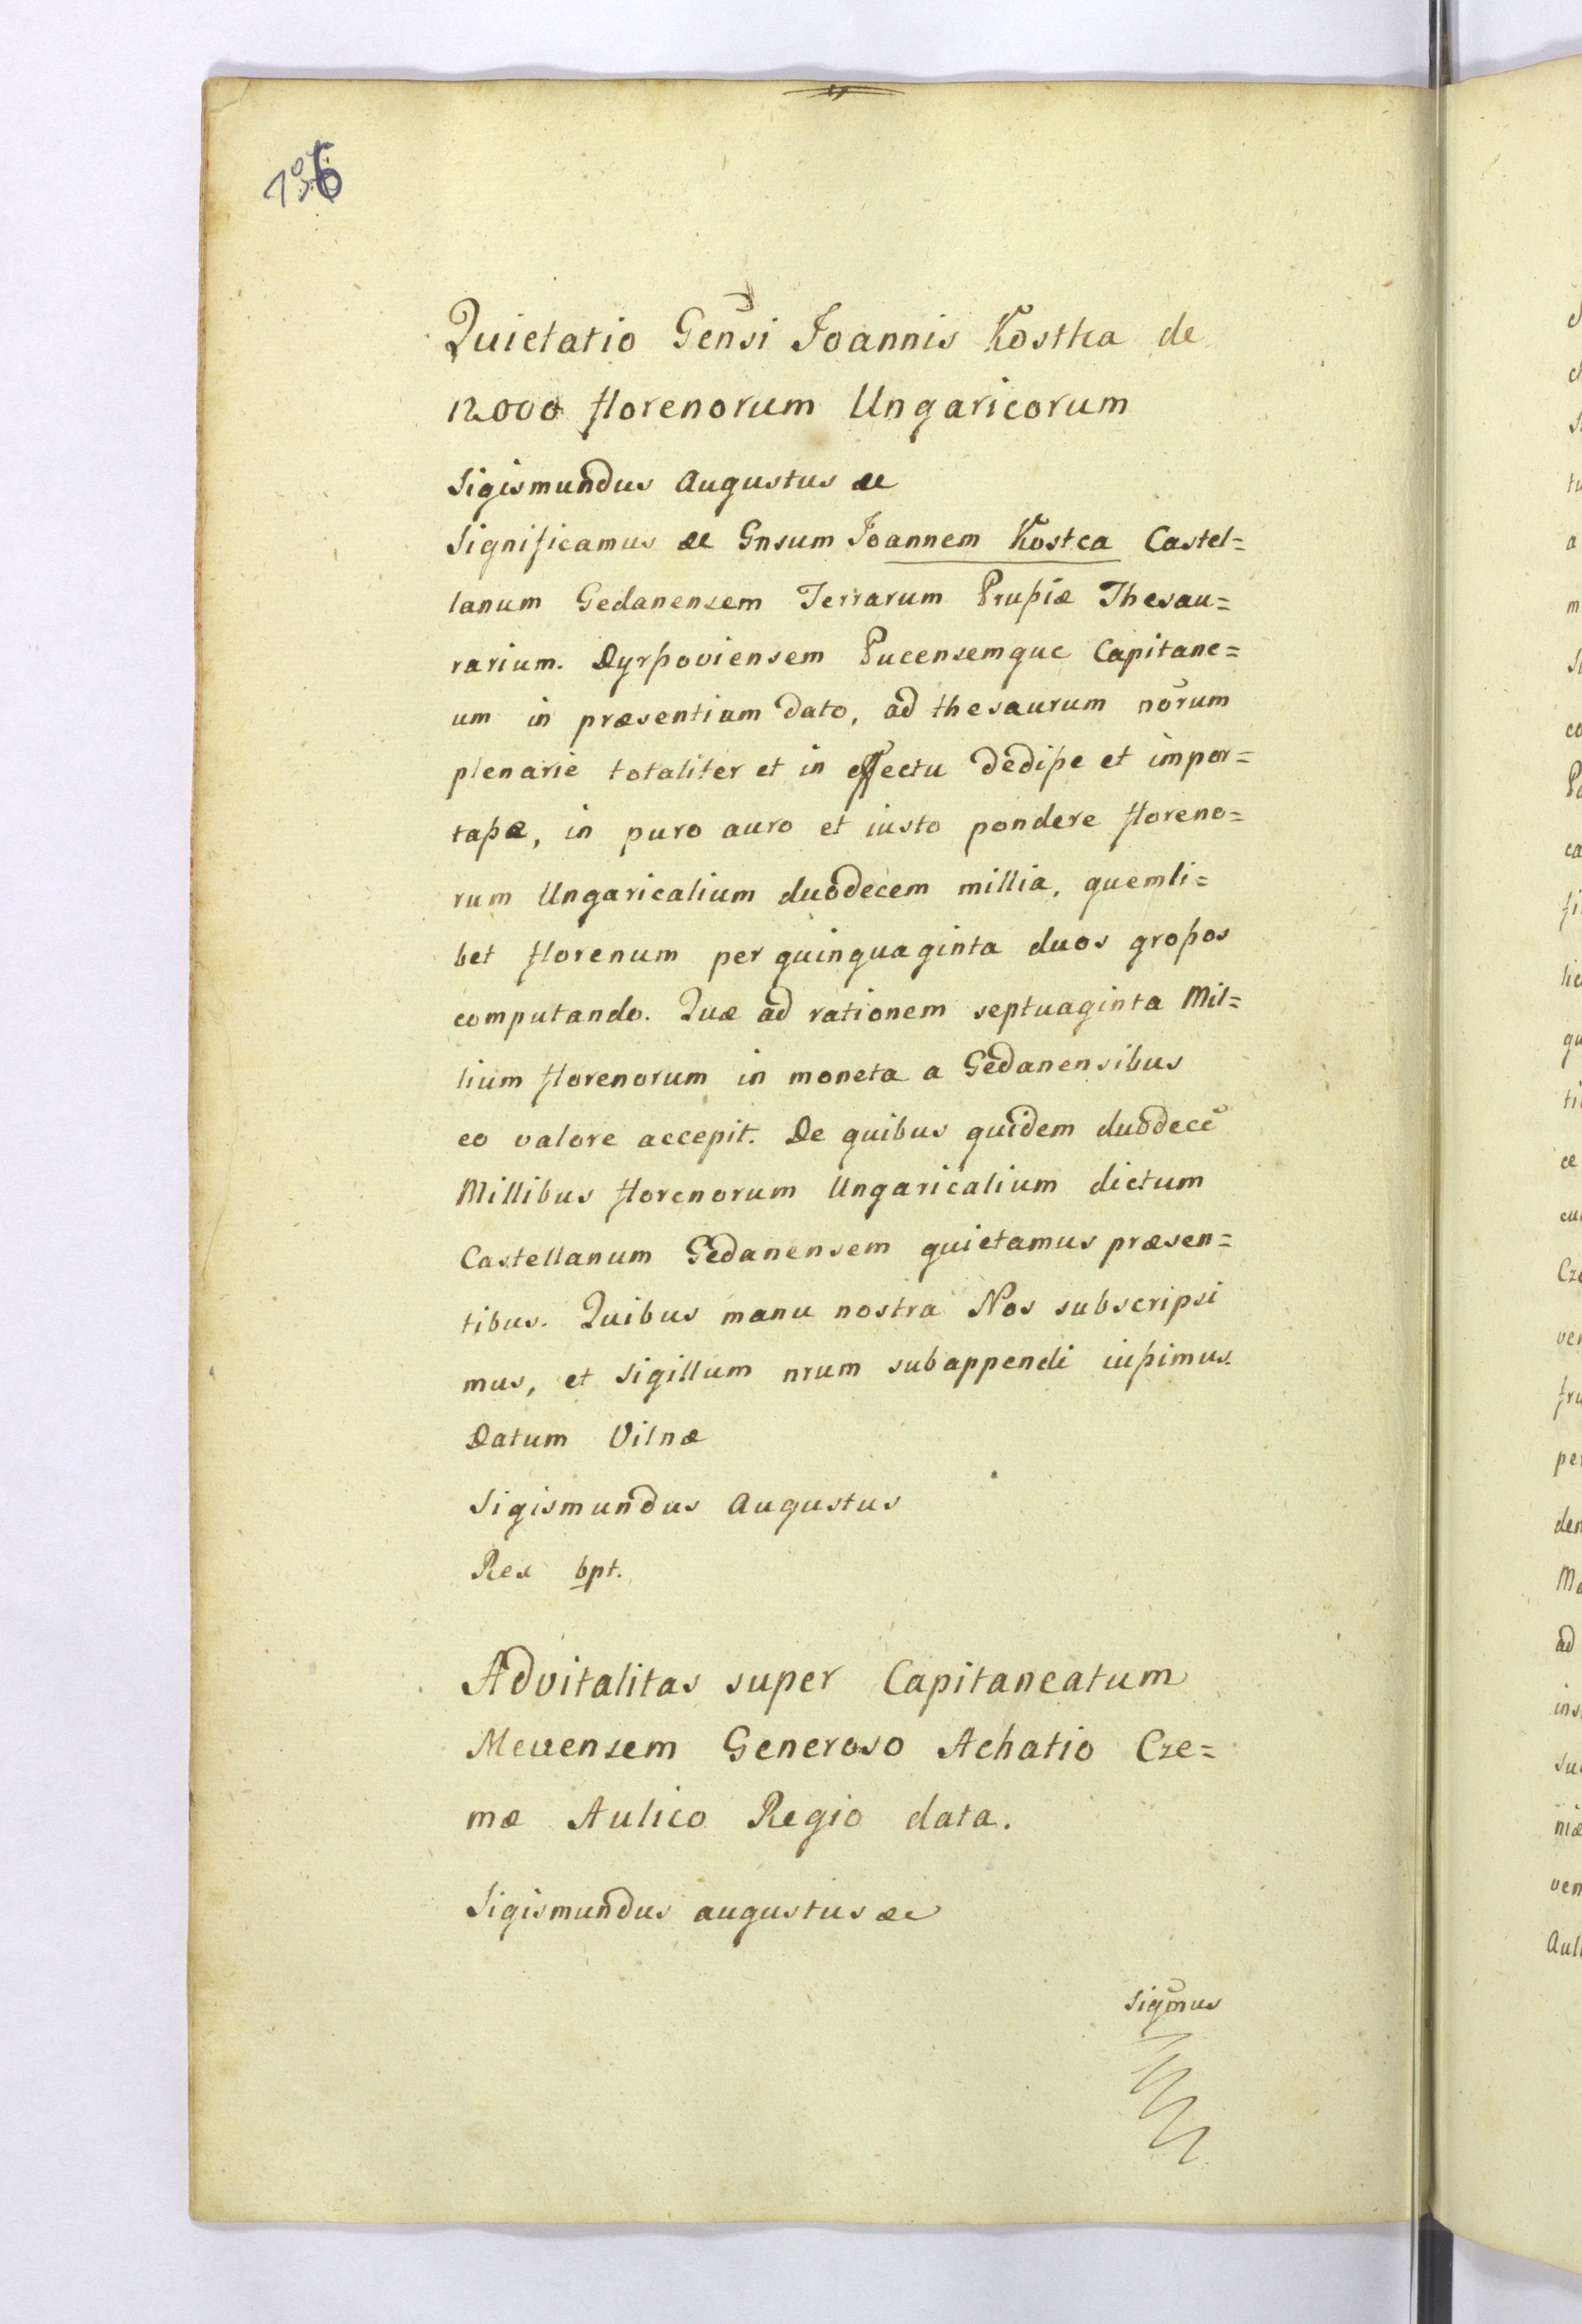 Quietatio Geñsi Joannis Kostka de
12000 florenorum Ungaricorum
Sigismundus Augustus &c
Significamus &c Gnsum Joannem Kostca Castel=
lanum Gedanensem Terrarum Prußiæ Thesau=
rarium. Dyrßoviensem Pucensemque Capitane=
um in præsentiam dato, ad thesaurum nõrum
plenarie totaliter et in effectu dediße et impor=
taßæ, in puro auro et iusto pondere floreno=
rum Ungaricalium duodecem millia, quemli=
bet florenum per quinquaginta duos großos
computando. Quæ ad rationem septuaginta Mil=
lium florenorum in moneta a Gedanensibus
eo valore accepit. De quibus quidem duodecẽ
Millibus florenorum Ungaricalium dictum
Castellanum Gedanensem quietamus præsen=
tibus. Quibus manu nostra Nos subscripsi
mus, et Sigillum nrum subappendi iußimus.
Datum Vilnæ
Sigismundus Augustus
Rex bpt.
Advitalitas super Capitaneatum
Mevensem Generoso Achatio Cze=
mæ Aulico Regio data.
Sigismundus augustus &c
Sigm̃us